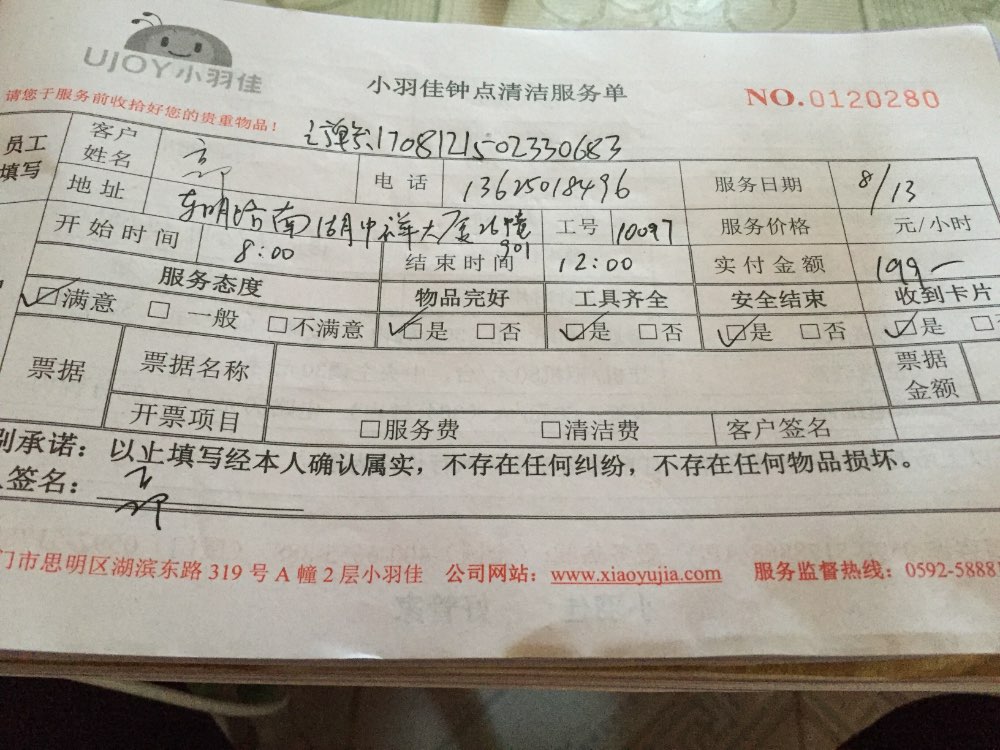 UJOY小羽佳
小羽佳钟点清洁服务单
NO.0120280
请您于服务前收拾好您的贵重物品！
订单号1708121502330683
员工填写 客户姓名 电话 13625018496 服务日期 8/13
地址 南湖中祥大厦 901 工号 10097 服务价格 元/小时
开始时间 8:00 结束时间 12:00 实付金额 199-
服务态度 物品完好 工具齐全 安全结束 收到卡片
☑满意 □一般 □不满意 ☑是 □否 ☑是 □否 ☑是 □否 ☑是 □
票据 票据名称 票据金额
开票项目 □服务费 □清洁费 客户签名
别承诺：以止填写经本人确认属实，不存在任何纠纷，不存在任何物品损坏。
签名：
门市思明区湖滨东路 319 号 A 幢 2 层小羽佳 公司网站：www.xiaoyujia.com 服务监督热线：0592-5888